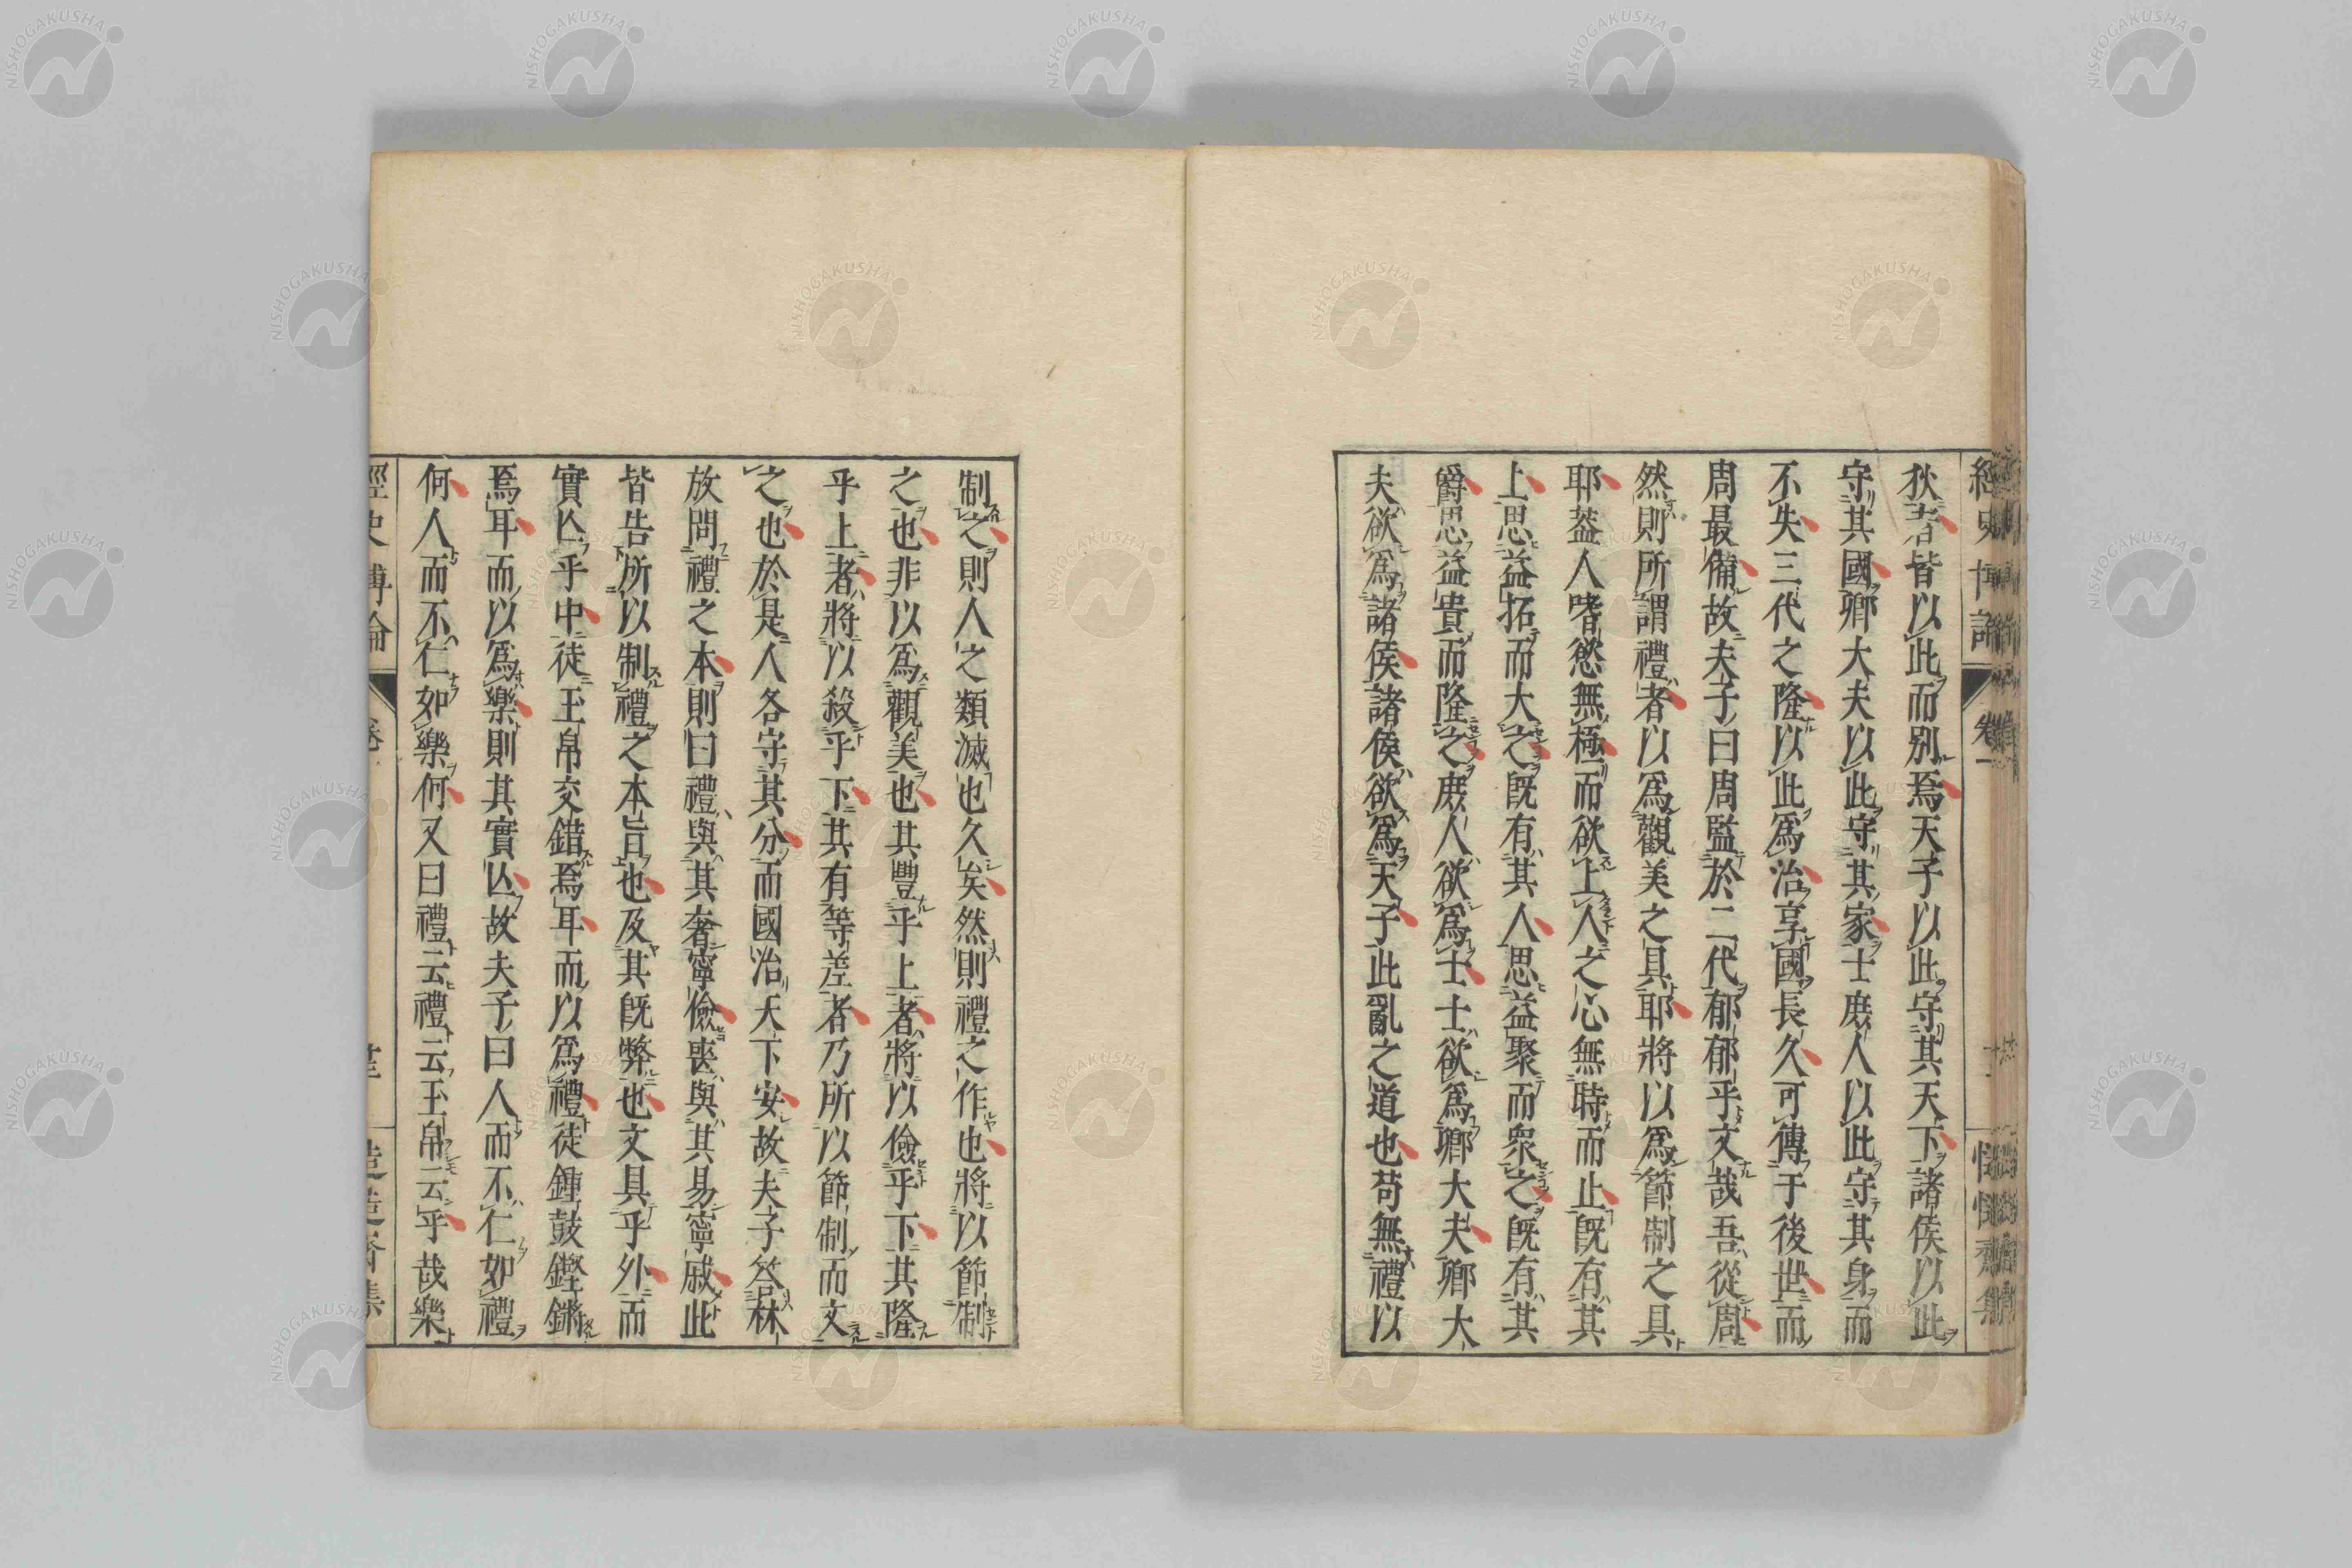 狄者皆以此而別焉天子以此守其天下諸侯以此
守其國卿大夫以此守其家士庶人以此守其身而
不失三代之隆以此爲治享國長久可傳于後世而
周最備故夫子曰周監於二代郁郁乎文哉吾從周
然則所謂禮者以爲觀美之具耶將以爲節制之具
耶蓋人嗜慾無極而欲上人之心無時而止既有其
上思益拓而大之既有其人思益聚而衆之既有其
爵思益貴而隆之庶人欲爲士士欲爲卿大夫卿大
夫欲爲諸侯諸侯欲爲天子此亂之道也苟無禮以
制之則人之類滅也久矣然則禮之作也將以節制
之也非以爲觀美也其豐乎上者將以儉乎下其隆
乎上者將以殺乎下其有等差者乃所以節制而文
之也於是人各守其分而國治天下安故夫子答林
放問禮之本則曰禮與其奢寧儉喪與其易寧戚此
皆告所以制禮之本旨也及其既弊也文具乎外而
實亾乎中徒玉帛交錯焉耳而以爲禮徒鍾鼓鏗鏘
焉耳而以爲樂則其實亾故夫子曰人而不仁如禮
何人而不仁如樂何又曰禮云禮云玉帛云乎哉樂
經史博論
卷一
NISHOGAKUSHA